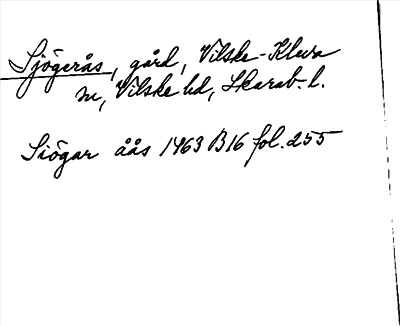 Sjögerås, gård, Vilske-Kleva
sn, Vilske hd, Skarab. l.
Siögar åås 1463 B16 fol. 255